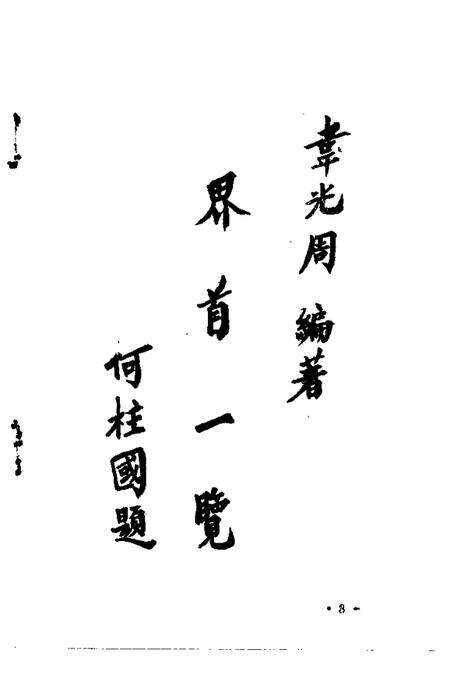 韋光周 編著
界首一覽
何柱國題
• 3 •